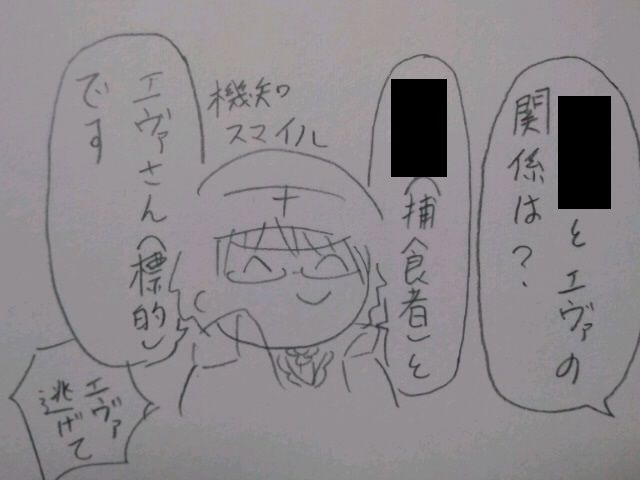 とエヴァの
関係は?
(捕食者)と
機知の
スマイル
エヴァさん(標的)
です
エヴァ
逃げて